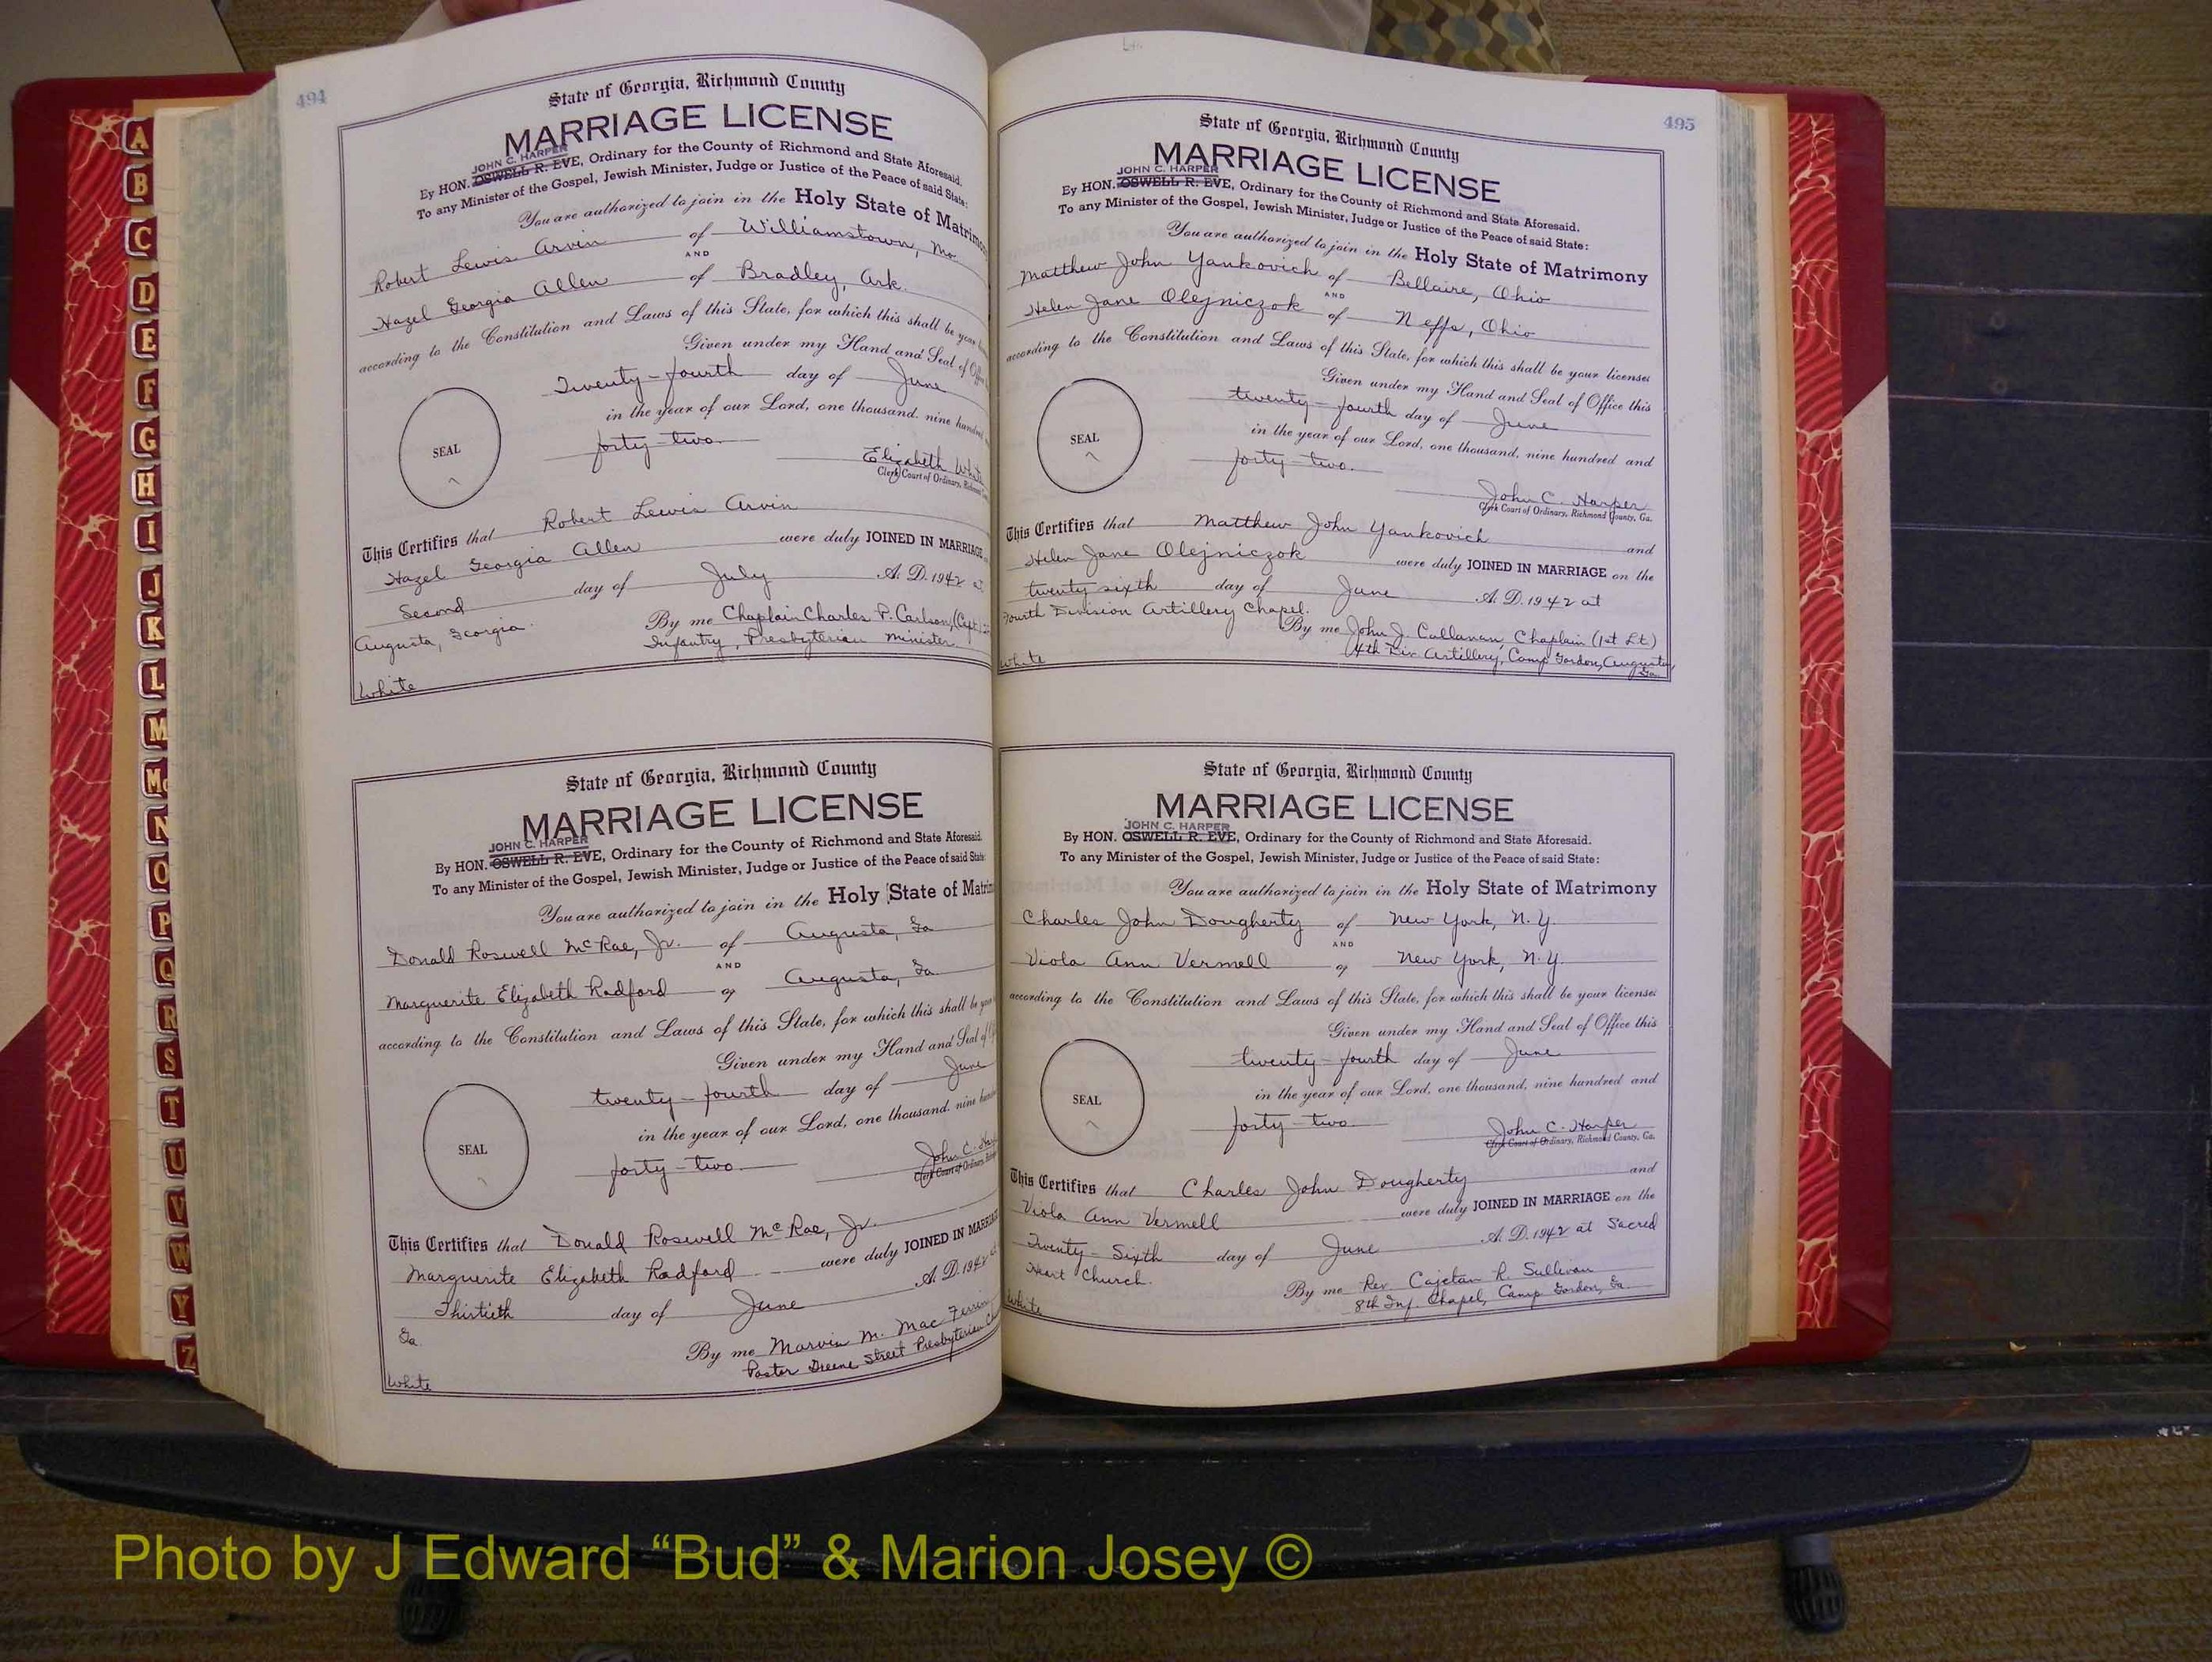 494
State of Georgia, Richmond County
MARRIAGE LICENSE
JOHN C. HARPER
By HON. OSWELL R. EVE, Ordinary for the County of Richmond and State Aforesaid.
To any Minister of the Gospel, Jewish Minister, Judge or Justice of the Peace of said State:
You are authorized to join in the Holy State of Matrimony
Robert Lewis Arvin of Williamstown, Mo.
AND
Hazel Georgia Allen of Bradley, Ark.
according to the Constitution and Laws of this State, for which this shall be your
Given under my Hand and Seal of
Twenty-fourth day of June
in the year of our Lord, one thousand, nine hundred
SEAL
forty-two.
Elizabeth
Clerk Court of Ordinary,
This Certifies that Robert Lewis Arvin
Hazel Georgia Allen were duly JOINED IN MARRIAGE
Second day of July A. D. 1942 at
Augusta, Georgia. By me Chaplain Charles P. Carlson, (Capt.)
Infantry, Presbyterian Minister.
White
State of Georgia, Richmond County
MARRIAGE LICENSE
JOHN C. HARPER
By HON. OSWELL R. EVE, Ordinary for the County of Richmond and State Aforesaid.
To any Minister of the Gospel, Jewish Minister, Judge or Justice of the Peace of said State:
You are authorized to join in the Holy State of
Donald Roswell McRae, Jr. of Augusta, Ga
AND
Marguerite Elizabeth Radford of Augusta, Ga.
according to the Constitution and Laws of this State, for which this shall be
Given under my Hand and Seal of
twenty-fourth day of June
in the year of our Lord, one thousand, nine
SEAL
forty-two.
John C.
Clerk Court of Ordinary,
This Certifies that Donald Roswell McRae, Jr.
Marguerite Elizabeth Radford were duly JOINED IN
Thirtieth day of June A. D. 1942
Ga.
By me Marvin M. Mac
Pastor Greene Street Presbyterian
White
495
State of Georgia, Richmond County
MARRIAGE LICENSE
JOHN C. HARPER
By HON. OSWELL R. EVE, Ordinary for the County of Richmond and State Aforesaid.
To any Minister of the Gospel, Jewish Minister, Judge or Justice of the Peace of said State:
You are authorized to join in the Holy State of Matrimony
Matthew John Yankovich of Bellaire, Ohio
AND
Helen Jane Olejniczok of Neffs, Ohio
according to the Constitution and Laws of this State, for which this shall be your license:
Given under my Hand and Seal of Office this
twenty-fourth day of June
in the year of our Lord, one thousand, nine hundred and
SEAL
forty-two.
John C. Harper
Clerk Court of Ordinary, Richmond County, Ga.
This Certifies that Matthew John Yankovich and
Helen Jane Olejniczok were duly JOINED IN MARRIAGE on the
twenty sixth day of June A. D. 1942 at
Fourth Division Artillery Chapel.
By me John J. Callanan, Chaplain (1st Lt.)
4th Div. Artillery, Camp Gordon, Augusta,
Ga.
White
State of Georgia, Richmond County
MARRIAGE LICENSE
JOHN C. HARPER
By HON. OSWELL R. EVE, Ordinary for the County of Richmond and State Aforesaid.
To any Minister of the Gospel, Jewish Minister, Judge or Justice of the Peace of said State:
You are authorized to join in the Holy State of Matrimony
Charles John Dougherty of New York, N.Y.
AND
Viola Ann Vermell of New York, N.Y.
according to the Constitution and Laws of this State, for which this shall be your license:
Given under my Hand and Seal of Office this
twenty-fourth day of June
in the year of our Lord, one thousand, nine hundred and
SEAL
forty-two
John C. Harper
Clerk Court of Ordinary, Richmond County, Ga.
This Certifies that Charles John Dougherty and
Viola Ann Vermell were duly JOINED IN MARRIAGE on the
Twenty-Sixth day of June A. D. 1942 at Sacred
Heart Church.
By me Rev. Cajetan R. Sullivan
8th Inf. Chapel, Camp Gordon, Ga.
White
A
B
C
D
E
F
G
H
I
J
K
L
M
Mc
N
O
P
Q
R
S
T
U
V
W
Y
Z
Photo by J Edward “Bud” & Marion Josey ©